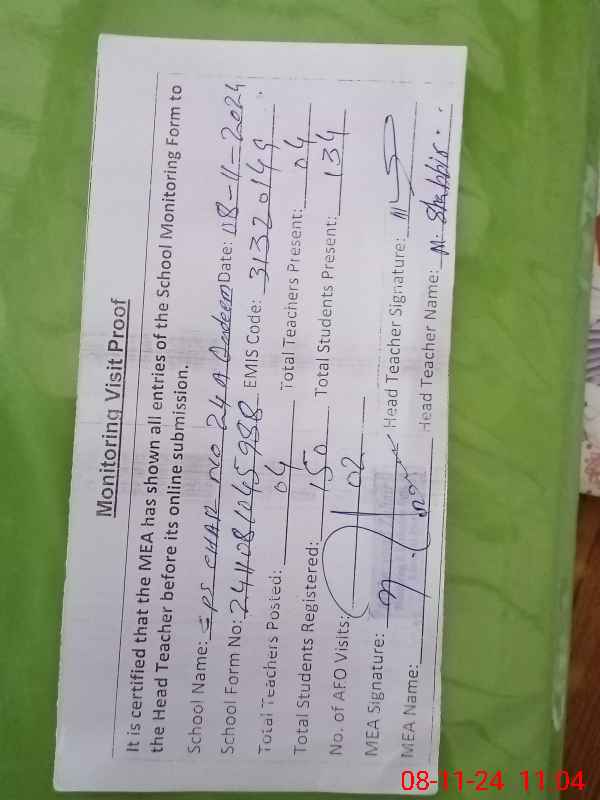 Monitoring Visit Proof
It is certified that the MEA has shown all entries of the School Monitoring Form to
the Head Teacher before its online submission.
School Name: GPS CHAR NO 24 A Date: 08-11-2024
School Form No: 241108104S988 EMIS Code: 31320149
Total Teachers Posted: 04 Total Teachers Present: 04
Total Students Registered: 150 Total Students Present: 134
No. of AFO Visits: 02
MEA Signature: Head Teacher Signature:
MEA Name: Head Teacher Name: M. Shabbir
08-11-24 11:04